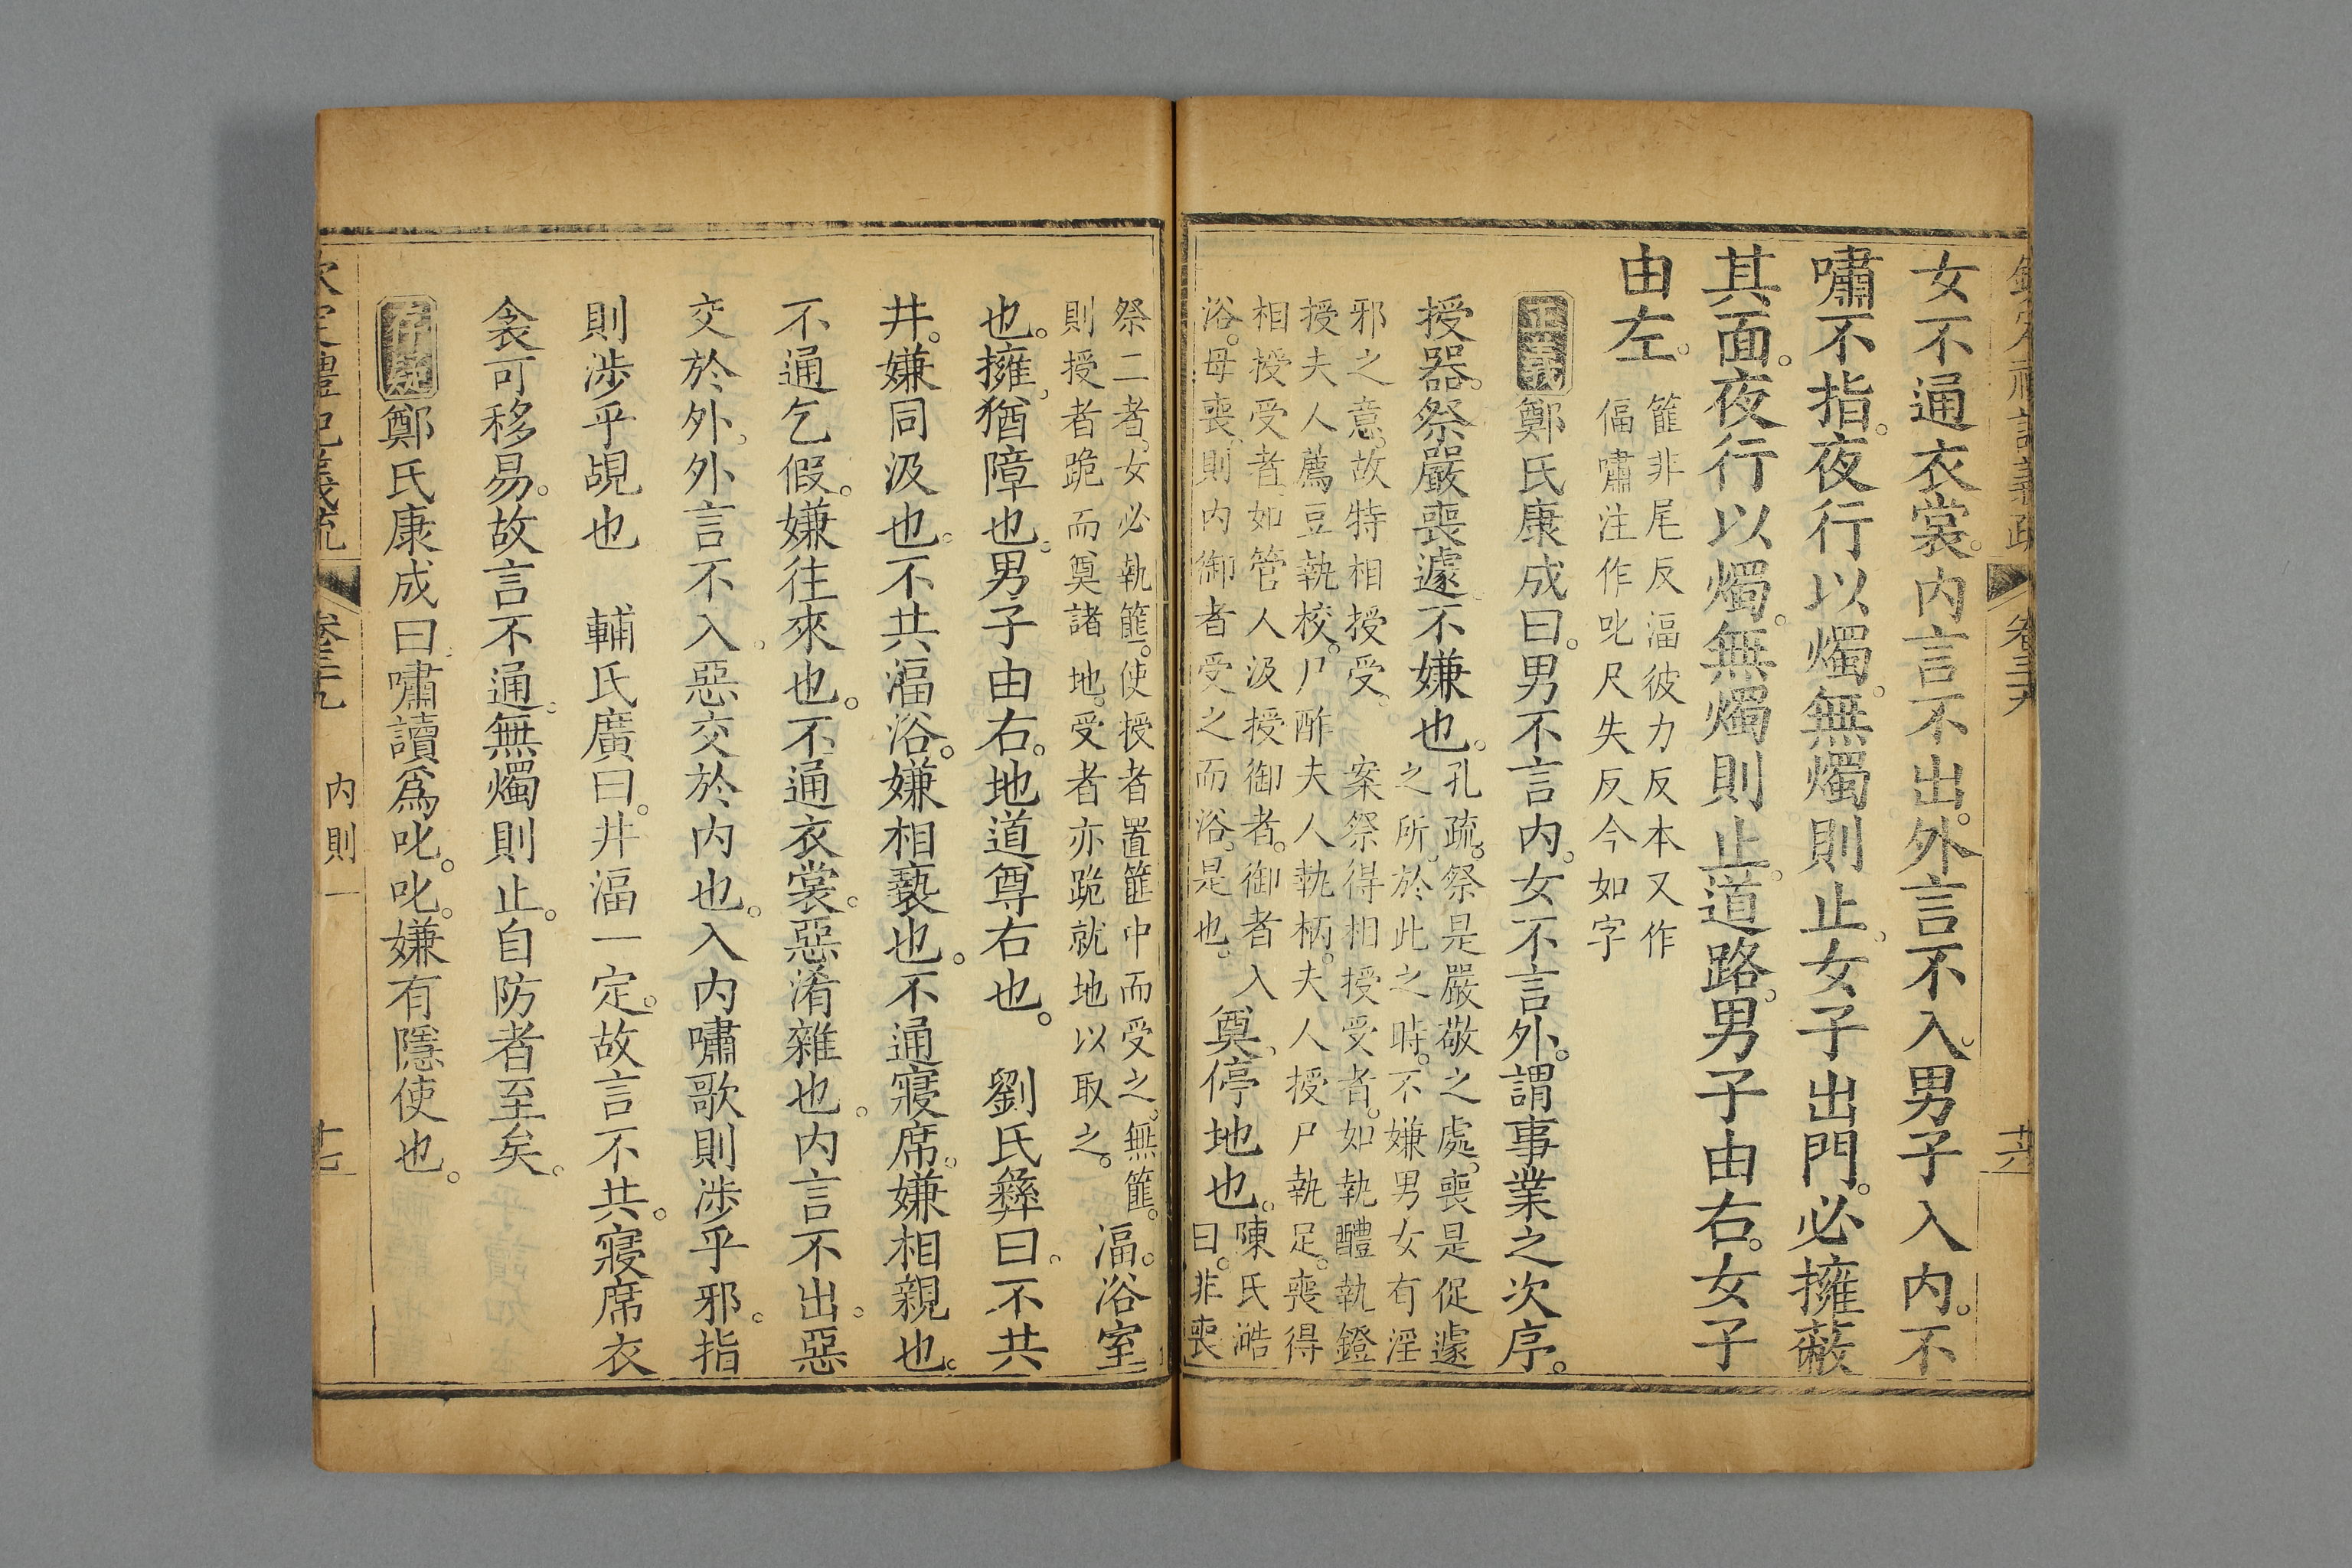 女不通衣裳。内言不出。外言不入。男子入内。不
嘯不指。夜行以燭。無燭則止。女子出門。必擁蔽
其面。夜行以燭。無燭則止。道路。男子由右。女子
由左。
篚非尾反湢彼力反本又作
偪嘯注作叱尺失反今如字
正義鄭氏康成曰。男不言内。女不言外。謂事業之次序。
授器。祭嚴喪遽不嫌也。
孔疏。祭是嚴敬之處。喪是促遽
之所。於此之時。不嫌男女有淫
邪之意。故特相授受。 案祭得相授受者。如執醴執鐙
授夫人薦豆執校。尸酢夫人執柄。夫人授尸執足。喪得
相授受者。如管人汲授御者。御者入
浴。母喪。則内御者受之而浴。是也。
奠、停地也。
陳氏澔
曰。非喪
祭二者。女必執篚。使授者置篚中而受之。無篚。
則授者跪而奠諸地。受者亦跪就地以取之。
湢。浴室
也。擁、猶障也。男子由右。地道尊右也。 劉氏彝曰。不共
井。嫌同汲也。不共湢浴。嫌相褻也。不通寢席。嫌相親也。
不通乞假。嫌往來也。不通衣裳。惡淆雜也。内言不出。惡
交於外。外言不入。惡交於内也。入内嘯歌則涉乎邪。指
則涉乎覘也 輔氏廣曰。井湢一定。故言不共。寢席衣
衾可移易。故言不通。無燭則止。自防者至矣。
存疑鄭氏康成曰。嘯讀爲叱。叱。嫌有隱使也。
欽定禮記義疏 卷三十九 内則 十七